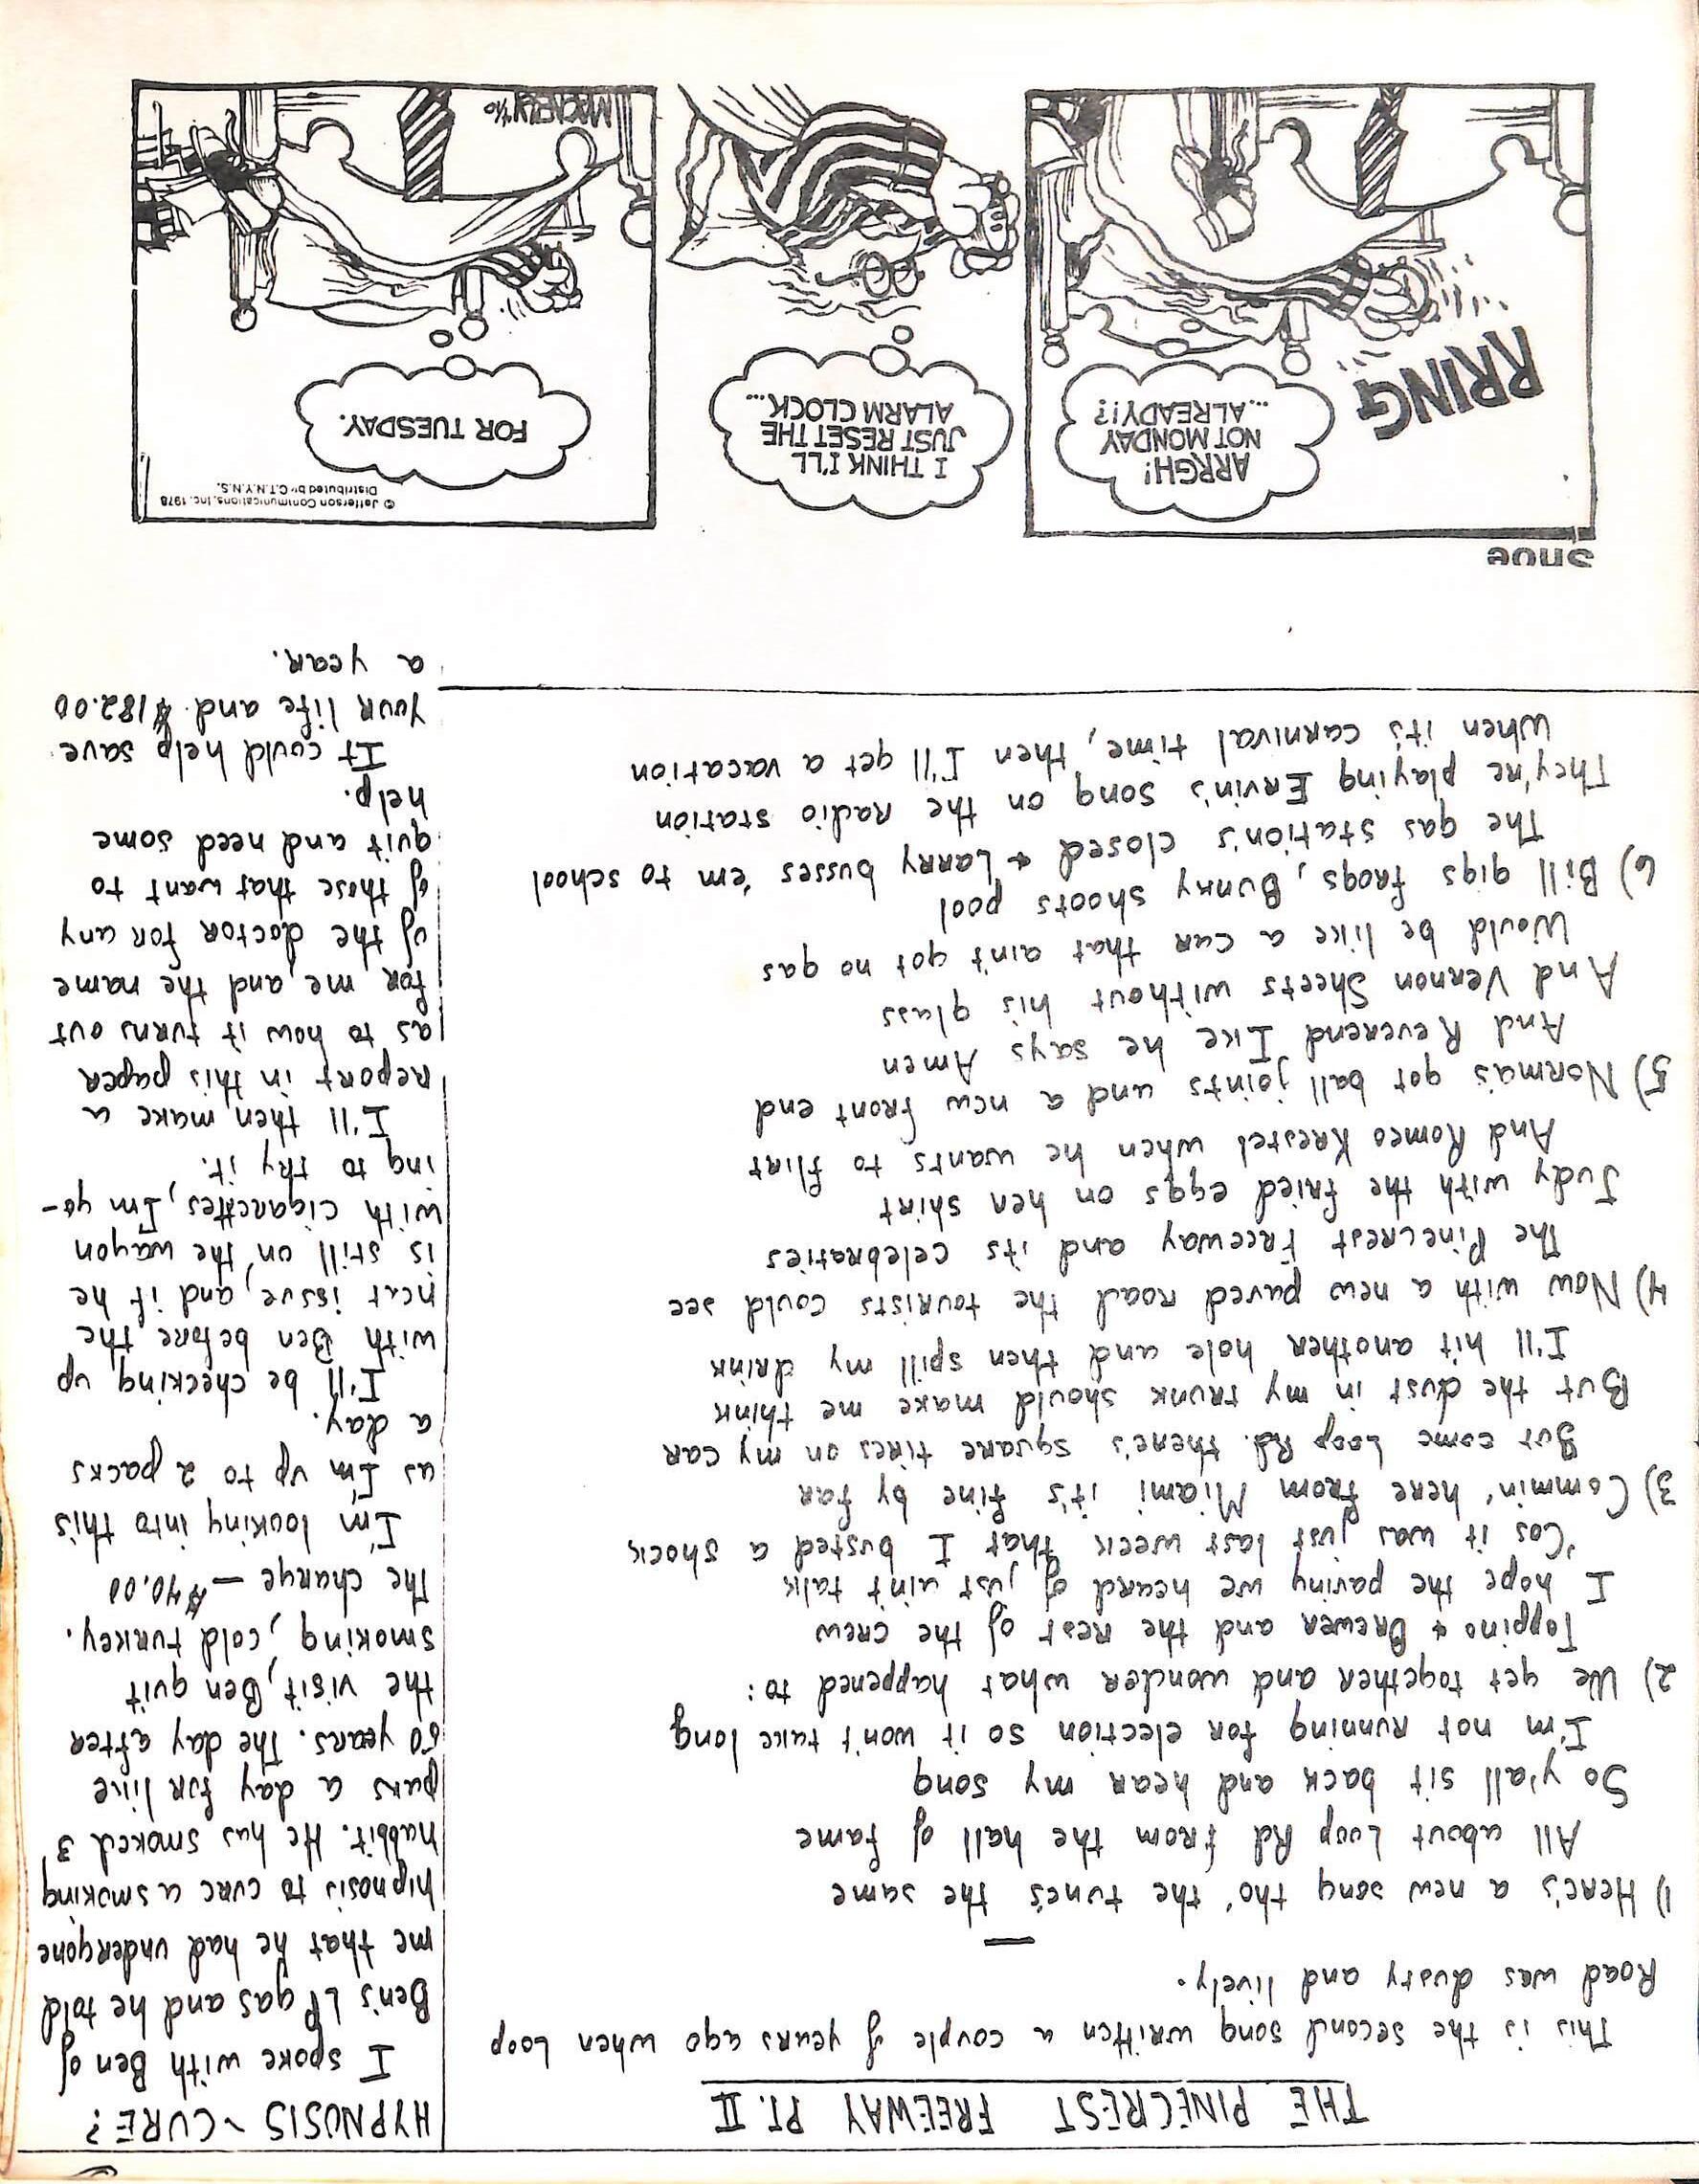 THE PINECREST FREEWAY PT. II
This is the second song written a couple of years ago when Loop
Road was dusty and lively.
1) Here's a new song tho' the tune's the same
All about Loop Rd from the hall of fame
So y'all sit back and hear my song
I'm not running for election so it won't take long
2) We get together and wonder what happened to:
Toppino & Brewer and the rest of the crew
I hope the paving we heard of just ain't talk
'Cos it was just last week that I busted a shock
3) Commin' here from Miami it's fine by far
But come Loop Rd. there's square tires on my car
But the dust in my trunk should make me think
I'll hit another hole and then spill my drink
4) Now with a new paved road the tourists could see
The Pinecrest Freeway and its celebraties
Judy with the fried eggs on her shirt
And Romeo Krestel when he wants to flirt
5) Norma's got ball joints and a new front end
And Reverend Ike he says Amen
And Vernon Sheets without his glass
Would be like a car that ain't got no gas
6) Bill gigs frogs, Bunky shoots pool
The gas station's closed & Larry busses 'em to school
They're playing Ervin's song on the radio station
When it's carnival time, then I'll get a vacation
HYPNOSIS ~ CURE?
I spoke with Ben of
Ben's LP gas and he told
me that he had undergone
hipnosis to cure a smoking
habbit. He has smoked 3
paks a day for like
50 years. The day after
the visit, Ben quit
smoking, cold turkey.
The charge – $40.00
I'm looking into this
as I'm up to 2 packs
a day.
I'll be checking up
with Ben before the
next issue, and if he
is still on the wagon
with cigarettes, I'm go-
ing to try it.
I'll then make a
report in this paper
as to how it turns out
for me and the name
of the doctor for any
of those that want to
quit and need some
help.
It could help save
your life and $182.00
a year.
Shoe
RRING
ARRGH!
NOT MONDAY
...ALREADY!?
I THINK I'LL
JUST RESET THE
ALARM CLOCK...
© Jefferson Communications, Inc. 1978
Distributed by C.T.N.Y.N.S.
FOR TUESDAY.
MACNELLY 4/10